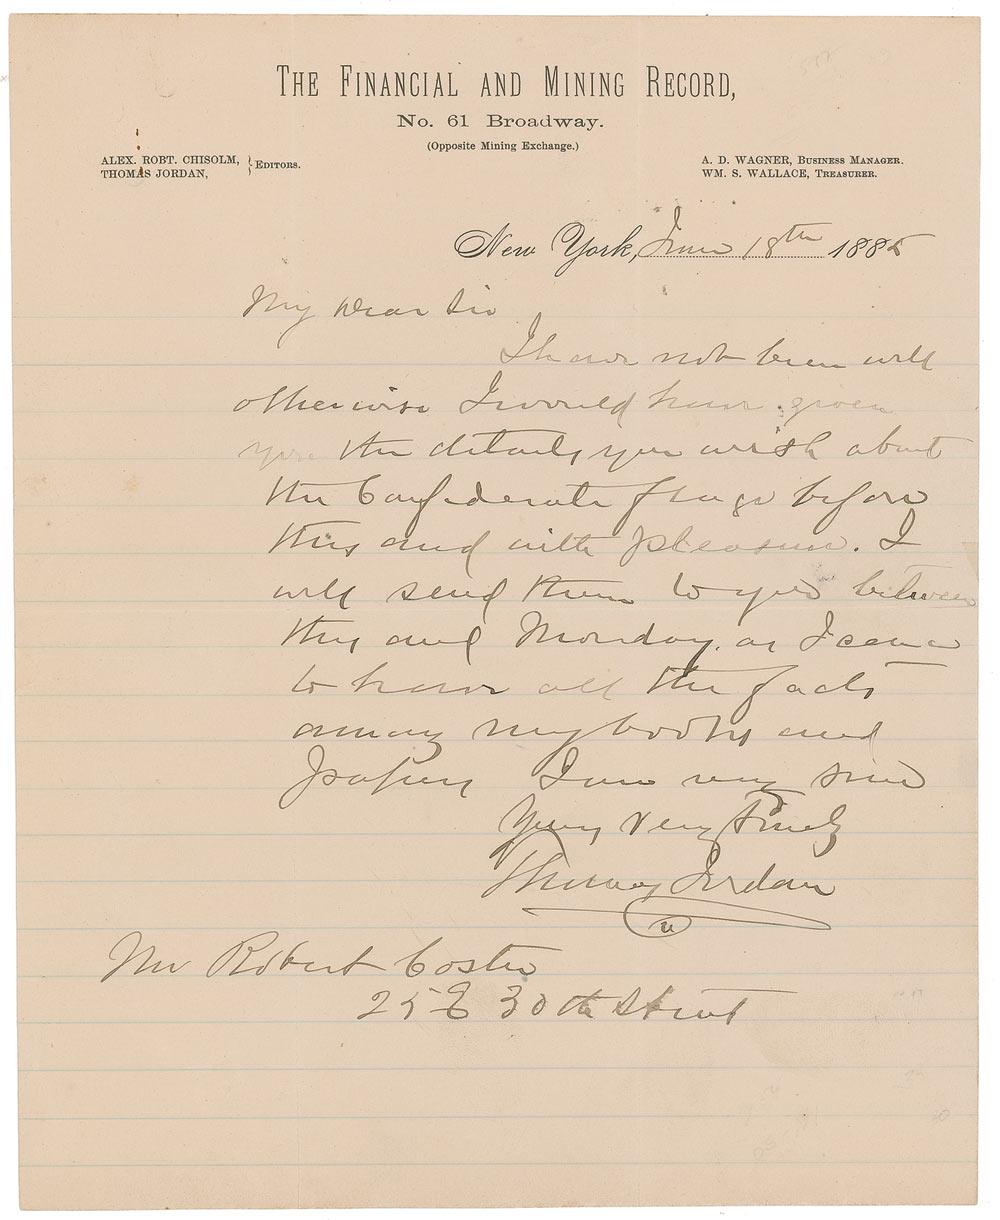 THE FINANCIAL AND MINING RECORD,
No. 61 Broadway.
(Opposite Mining Exchange.)
ALEX. ROBT. CHISOLM,
THOMAS JORDAN,
} EDITORS.
A. D. WAGNER, BUSINESS MANAGER.
WM. S. WALLACE, TREASURER.
New York, June 18th 1885
My Dear Sir
I have not been well
otherwise I would have given
you the details you wish about
the Confederate flags before
this and with pleasure. I
will send them to you between
this and Monday, as I seem
to have all the facts
among my books and
papers I am very sure
Yours very Truly
Thomas Jordan
Mr Robert Coster
25 E 30th Street